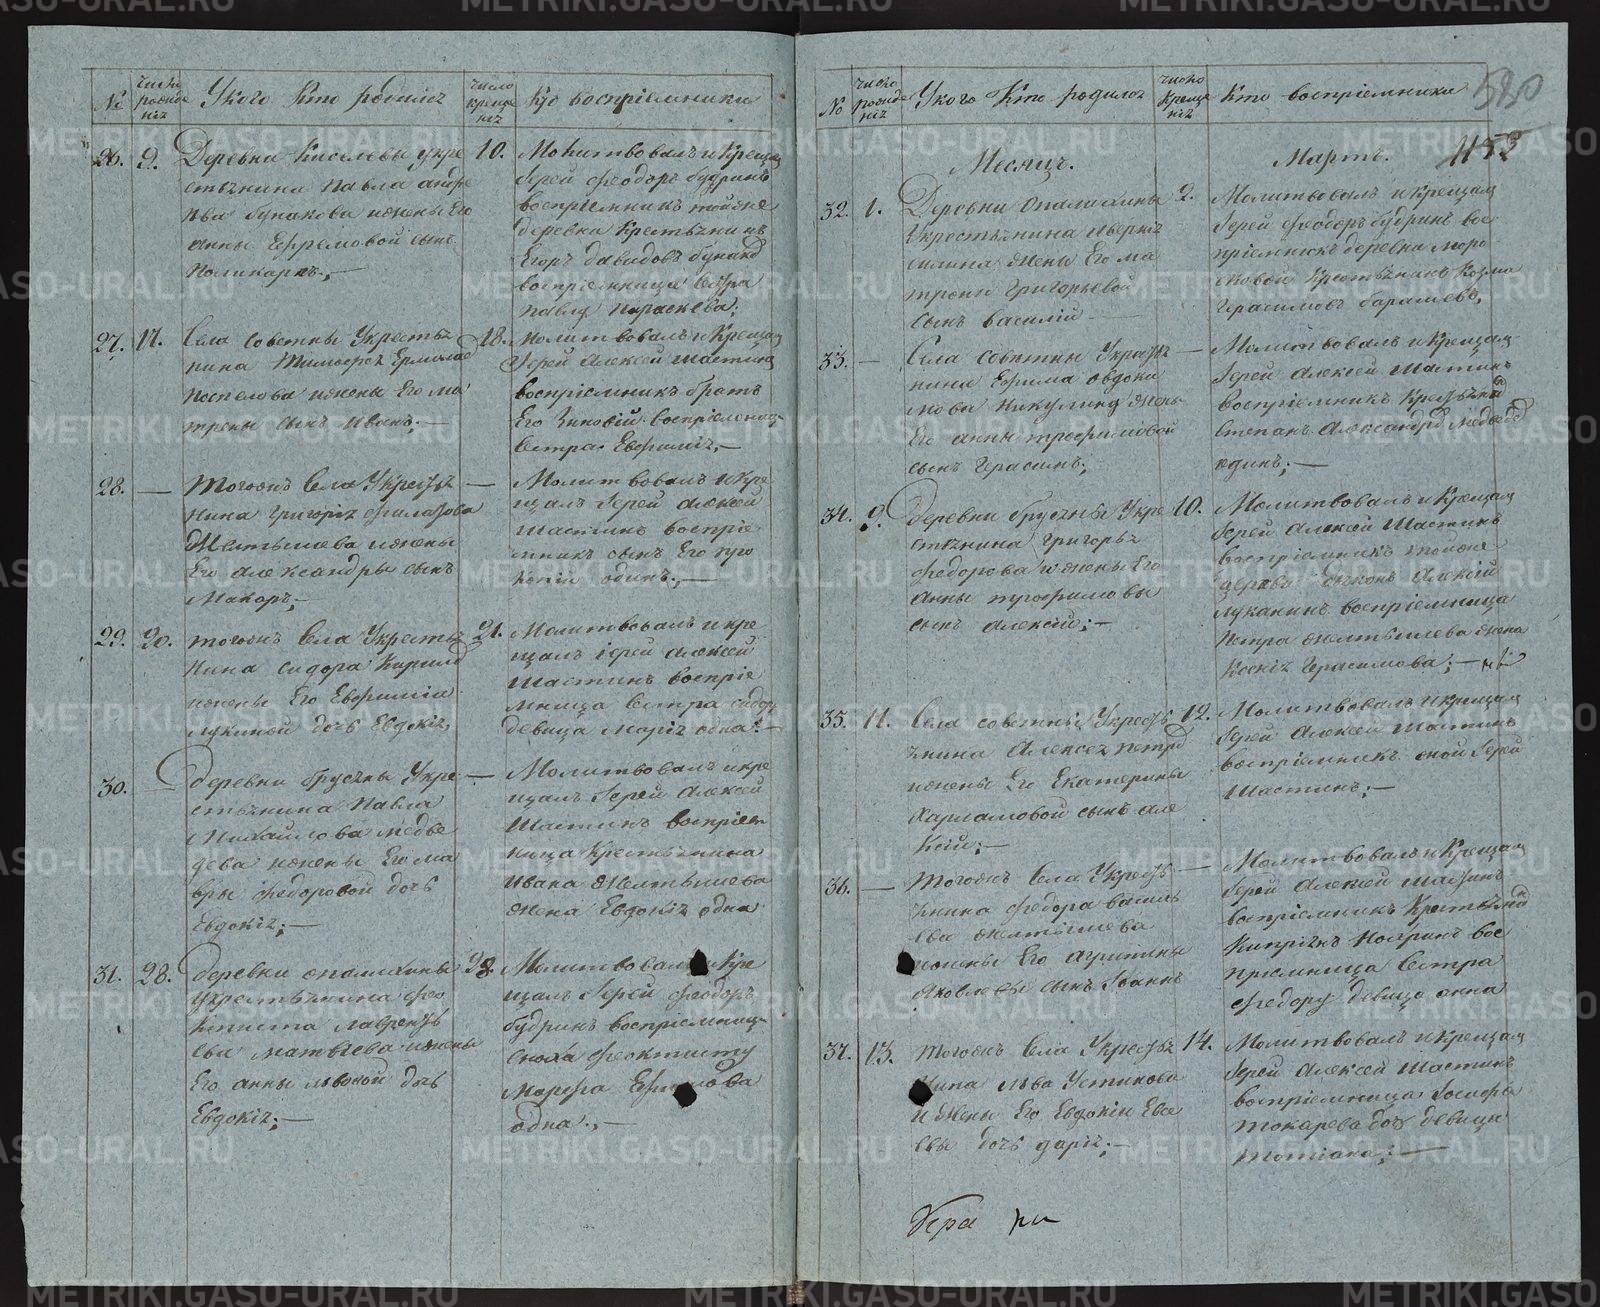 №
число рожде нiя
У кого Кто родился
число креще нiя
Кто воспрiемники
26. 9. Деревни Киселевы у кре
стьянина Павла Андре
ева Бунакова и жены Его
Анны Ефремовой сынъ
Поликарпъ;—
10. Молитвовалъ и Крещал
Iерей Феодоръ Будринъ
воспрiемникъ тойже
деревни Крестьянинъ
Егоръ Давидовъ Бунаков
воспрiемница Сестра
Павлу Параскева;
27. 17. Села Советны У кресть
янина Тимофея Ермолае
Поспелова и жены Его Ма
трены сынъ Иванъ;—
18. Молитвовалъ и Крещал
Iерей Алексей Шастинъ
воспрiемникъ братъ
Его Зиновiй воспрiемница
Сестра Евфимiя,—
28. — Тогожъ Села У Кресть —
нина Григорiя Филатова
Желтышева и жены
Его Александры сынъ
Макаръ;—
Молитвовалъ и Кре
щалъ Iерей Алексей
Шастинъ воспрiе
мникъ сынъ Его Про
копiй одинъ.,—
29. 20. Тогожъ Села У Кресть
янина Сидора Кирило
и жены Его Евфимiи
Лукиной дочь Евдокiя,
21. Молитвовалъ и кре
щалъ Iерей Алексей
Шастинъ воспрiе
мница Сестра Сидору
девица Марiя одна.—
30. — Деревни Брусяны У кре —
стьянина Павла
Михайлова Медве
дева и жены Его Ма
вры Федоровой дочь
Евдокiя;—
Молитвовалъ и кре
щалъ Iерей Алексей
Шастинъ воспрiем
ница Крестьянина
Ивана Желтышева
жена Евдокiя одна
31. 28. Деревни Опалихины
У крестьянина Фео
ктиста Лавренть
ева Матвеева и жены
Его Анны Львовой дочь
Евдокiя;—
28. Молитвовалъ и Кре
щалъ Iерей Феодоръ
Будринъ воспрiемница
Сноха Феоктисту
Марфа
одна.,—
№
число рожде нiя
У кого Кто родился
число Креще нiя
Кто воспрiемники
580
Месяцъ. Мартъ.
32. 1. Деревни Опалихины
У крестьянина
Силина жены Его Ма
троны Григорьевой
сынъ Василiй
2. Молитвовалъ и крещал
Iерей Феодоръ Будринъ вос
прiемникъ деревни Моро
зковой Крестьянинъ Козма
Герасимовъ Барашевъ,
33. — Села Советны У Кресть —
нина Ефима Овдоки
мова Никулина жены
Его Анны Трофимовой
сынъ Герасимъ;
Молитвовалъ и Крещал
Iерей Алексей Шастинъ
воспрiемникъ Крестьянин
Степанъ Александров Медвед
одинъ;—
34. 9. Деревни Брусяны У кре
стьянина Григорья
Федорова и жены Его
Анны Трофимовы
сынъ Алексей;—
10. Молитвовалъ и Крещал
Iерей Алексей Шастинъ
воспрiемникъ тойже
церкви Дьяконъ Алексiй
Луканинъ воспрiемница
Петра Желтышева жена
Ксенiя Герасимова;—
35. 11. Села Советны У Кресть
янина Алексея Петров
и жены Его Екатерины
Харламовой сынъ Але
ксiй;—
12. Молитвовалъ и Крещал
Iерей Алексей Шастинъ
воспрiемникъ оной Iерей
Шастинъ;—
36. — Тогожъ Села У Кресть —
янина Федора Василь
ева Желтышева
и жены Его Агрипины
Яковлевы сынъ Iоаннъ
Молитвовалъ и Крещал
Iерей Алексей Шастинъ
воспрiемникъ Крестьянин
Кипрiянъ Нояринъ вос
прiемница Сестра
Федору девица Анна
37. 13. Тогожъ Села У Кресть
янина Льва Устинова
и жены Его Евдокiи Евсе
евы дочь Дарiя;—
14. Молитвовалъ и Крещал
Iерей Алексей Шастинъ
воспрiемница Iосифа
Токарева дочь девица
Татiана;—